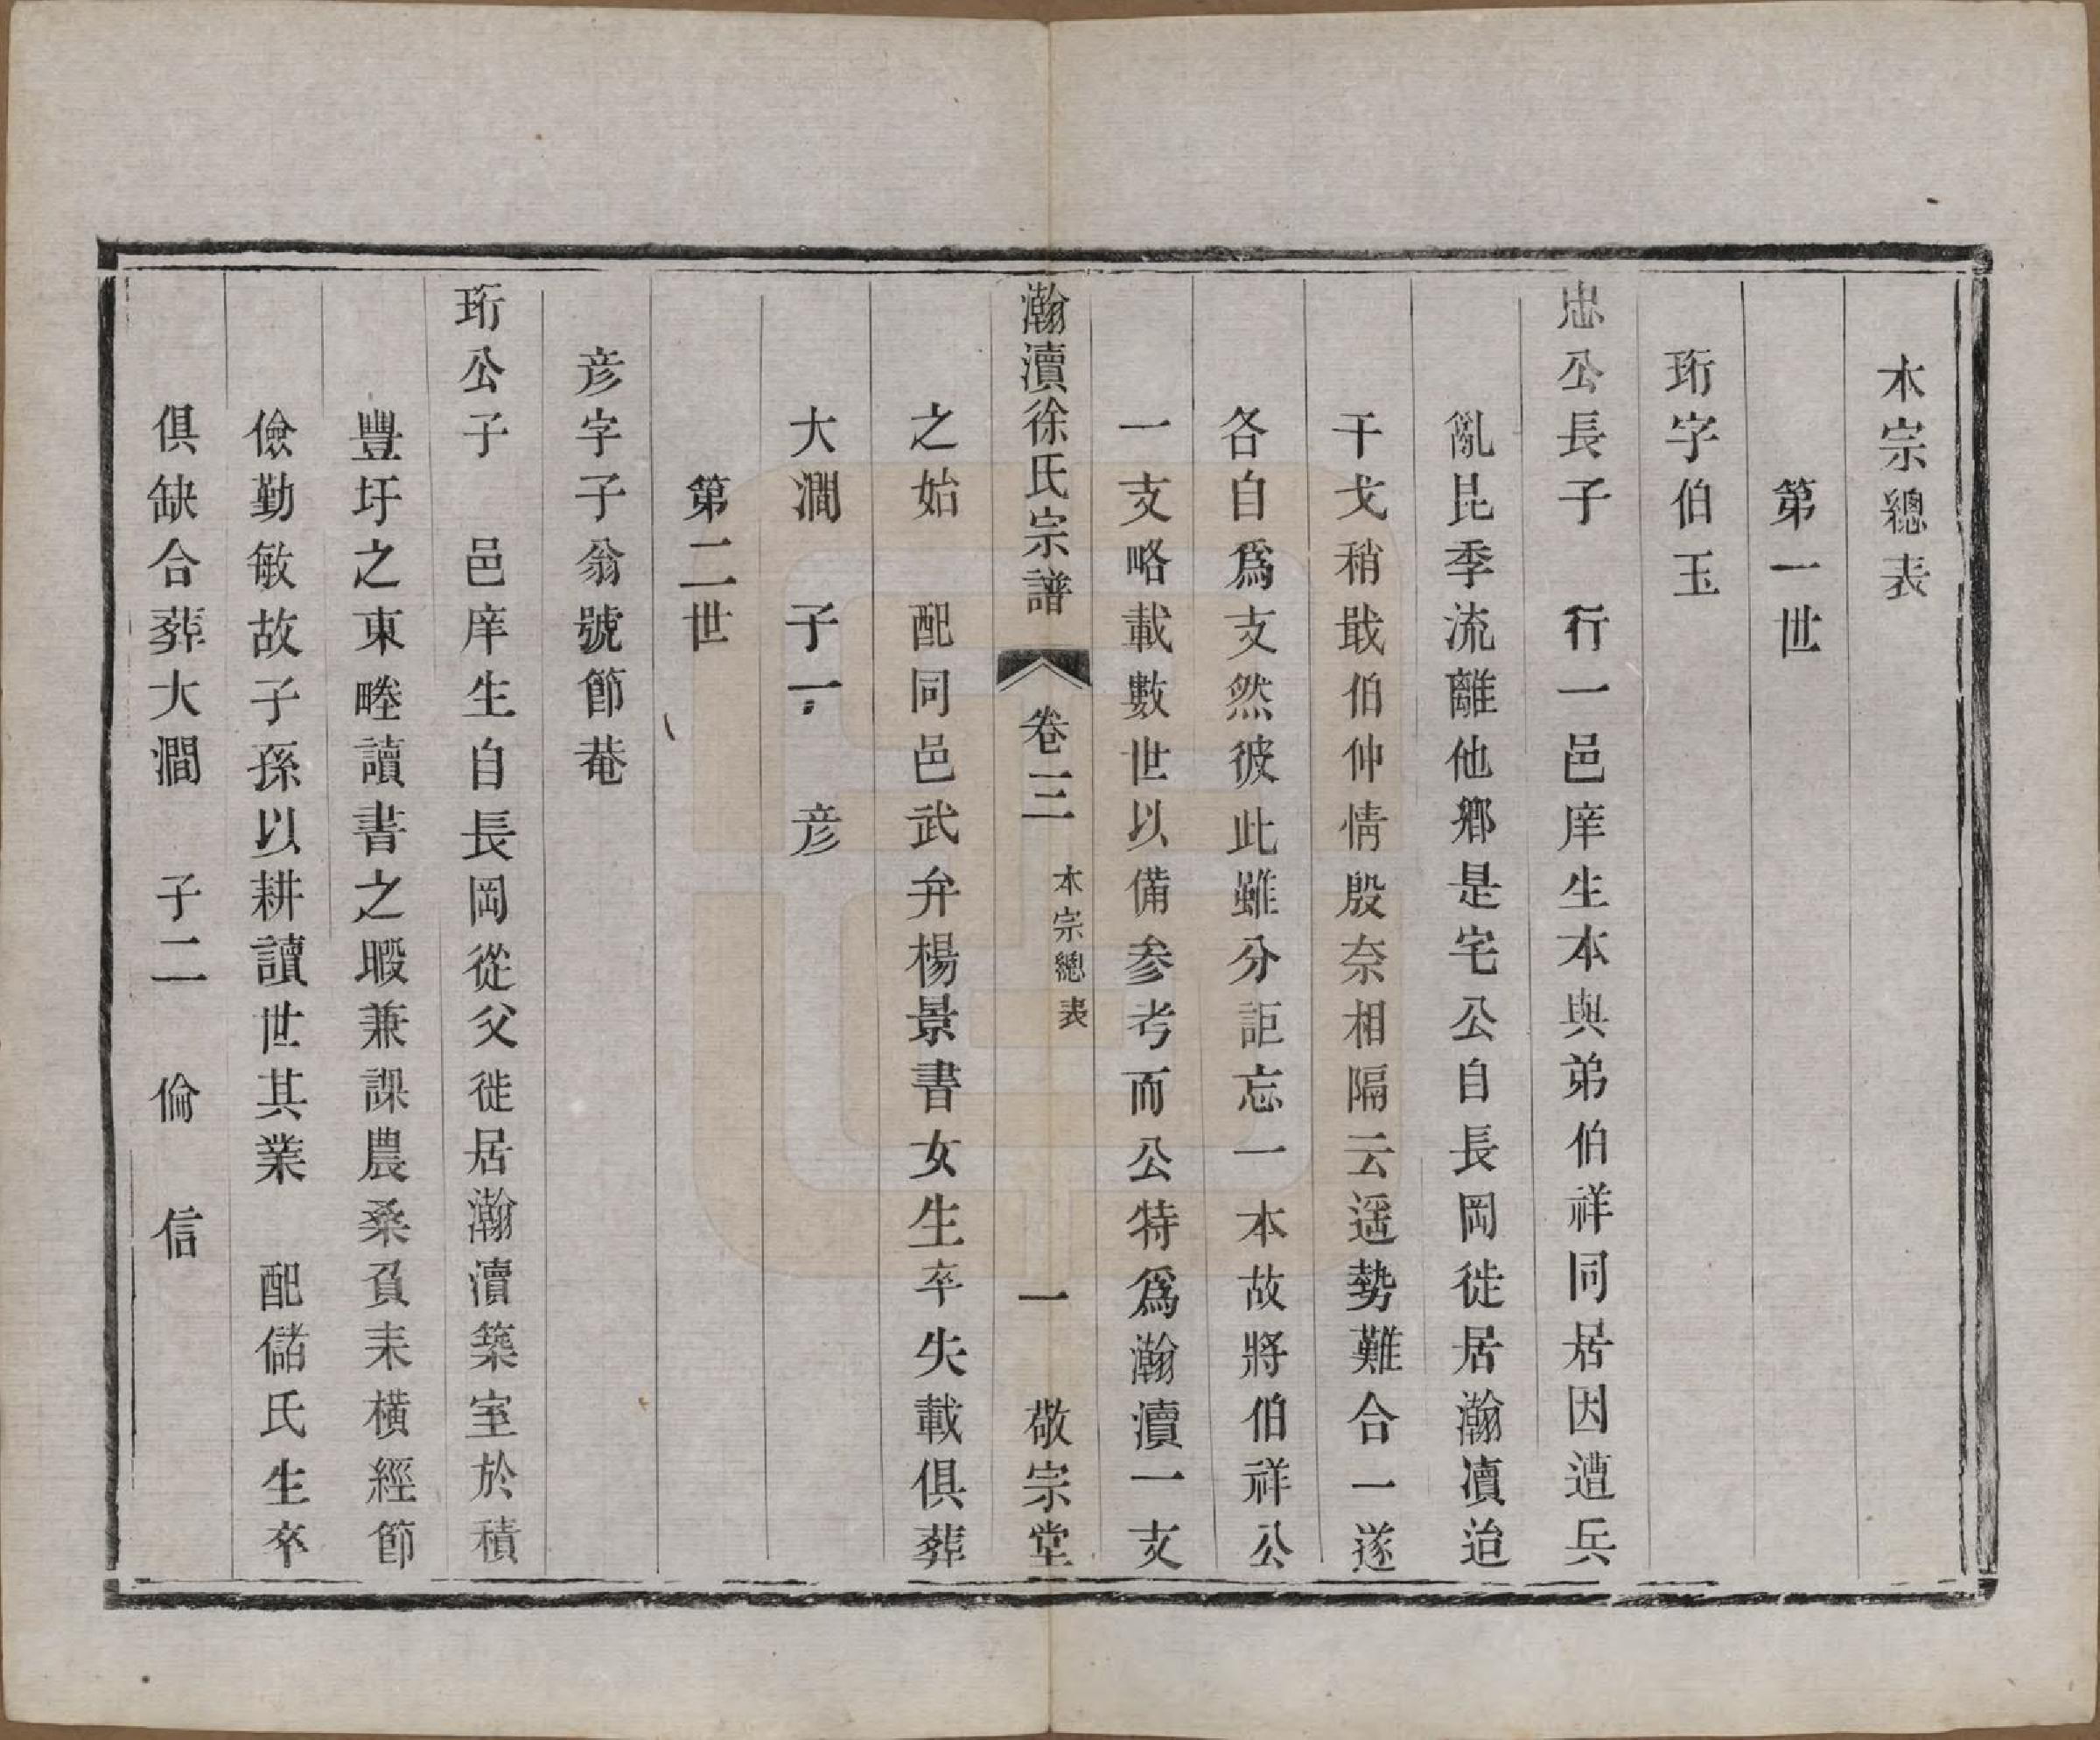 本宗總表
第一世
珩字伯玉
忠公長子　行一邑庠生本與弟伯祥同居因遭兵
亂昆季流離他鄉是宅公自長岡徙居瀚凟迨
干戈稍戢伯仲情殷奈相隔云遥勢難合一遂
各自爲支然彼此雖分詎忘一本故將伯祥公
一支略載數世以備参考而公特爲瀚瀆一支
瀚瀆徐氏宗譜　卷三　本宗總表　一　敬宗堂
之始　配同邑武弁楊景書女生卒失載俱葬
大澗　子一　彦
第二世
彦字子翁號節菴
珩公子　邑庠生自長岡從父徙居瀚瀆築室於積
豐圩之東畻讀書之暇兼課農桑負耒横經節
儉勤敏故子孫以耕讀世其業　配儲氏生卒
俱缺合葬大澗　子二　倫　信